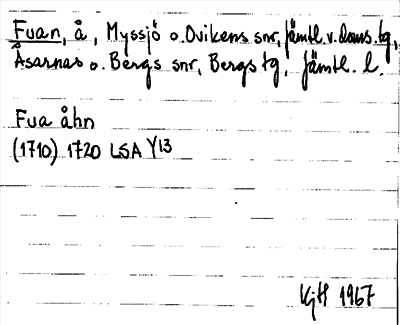 Fuan, å, Myssjö o. Ovikens snr, Jämtl. v. doms. tg,
Åsarnas o. Bergs snr, Bergs tg, Jämtl. l.
Fua åhn
(1710) 1720 LSA Y13
KjH 1967